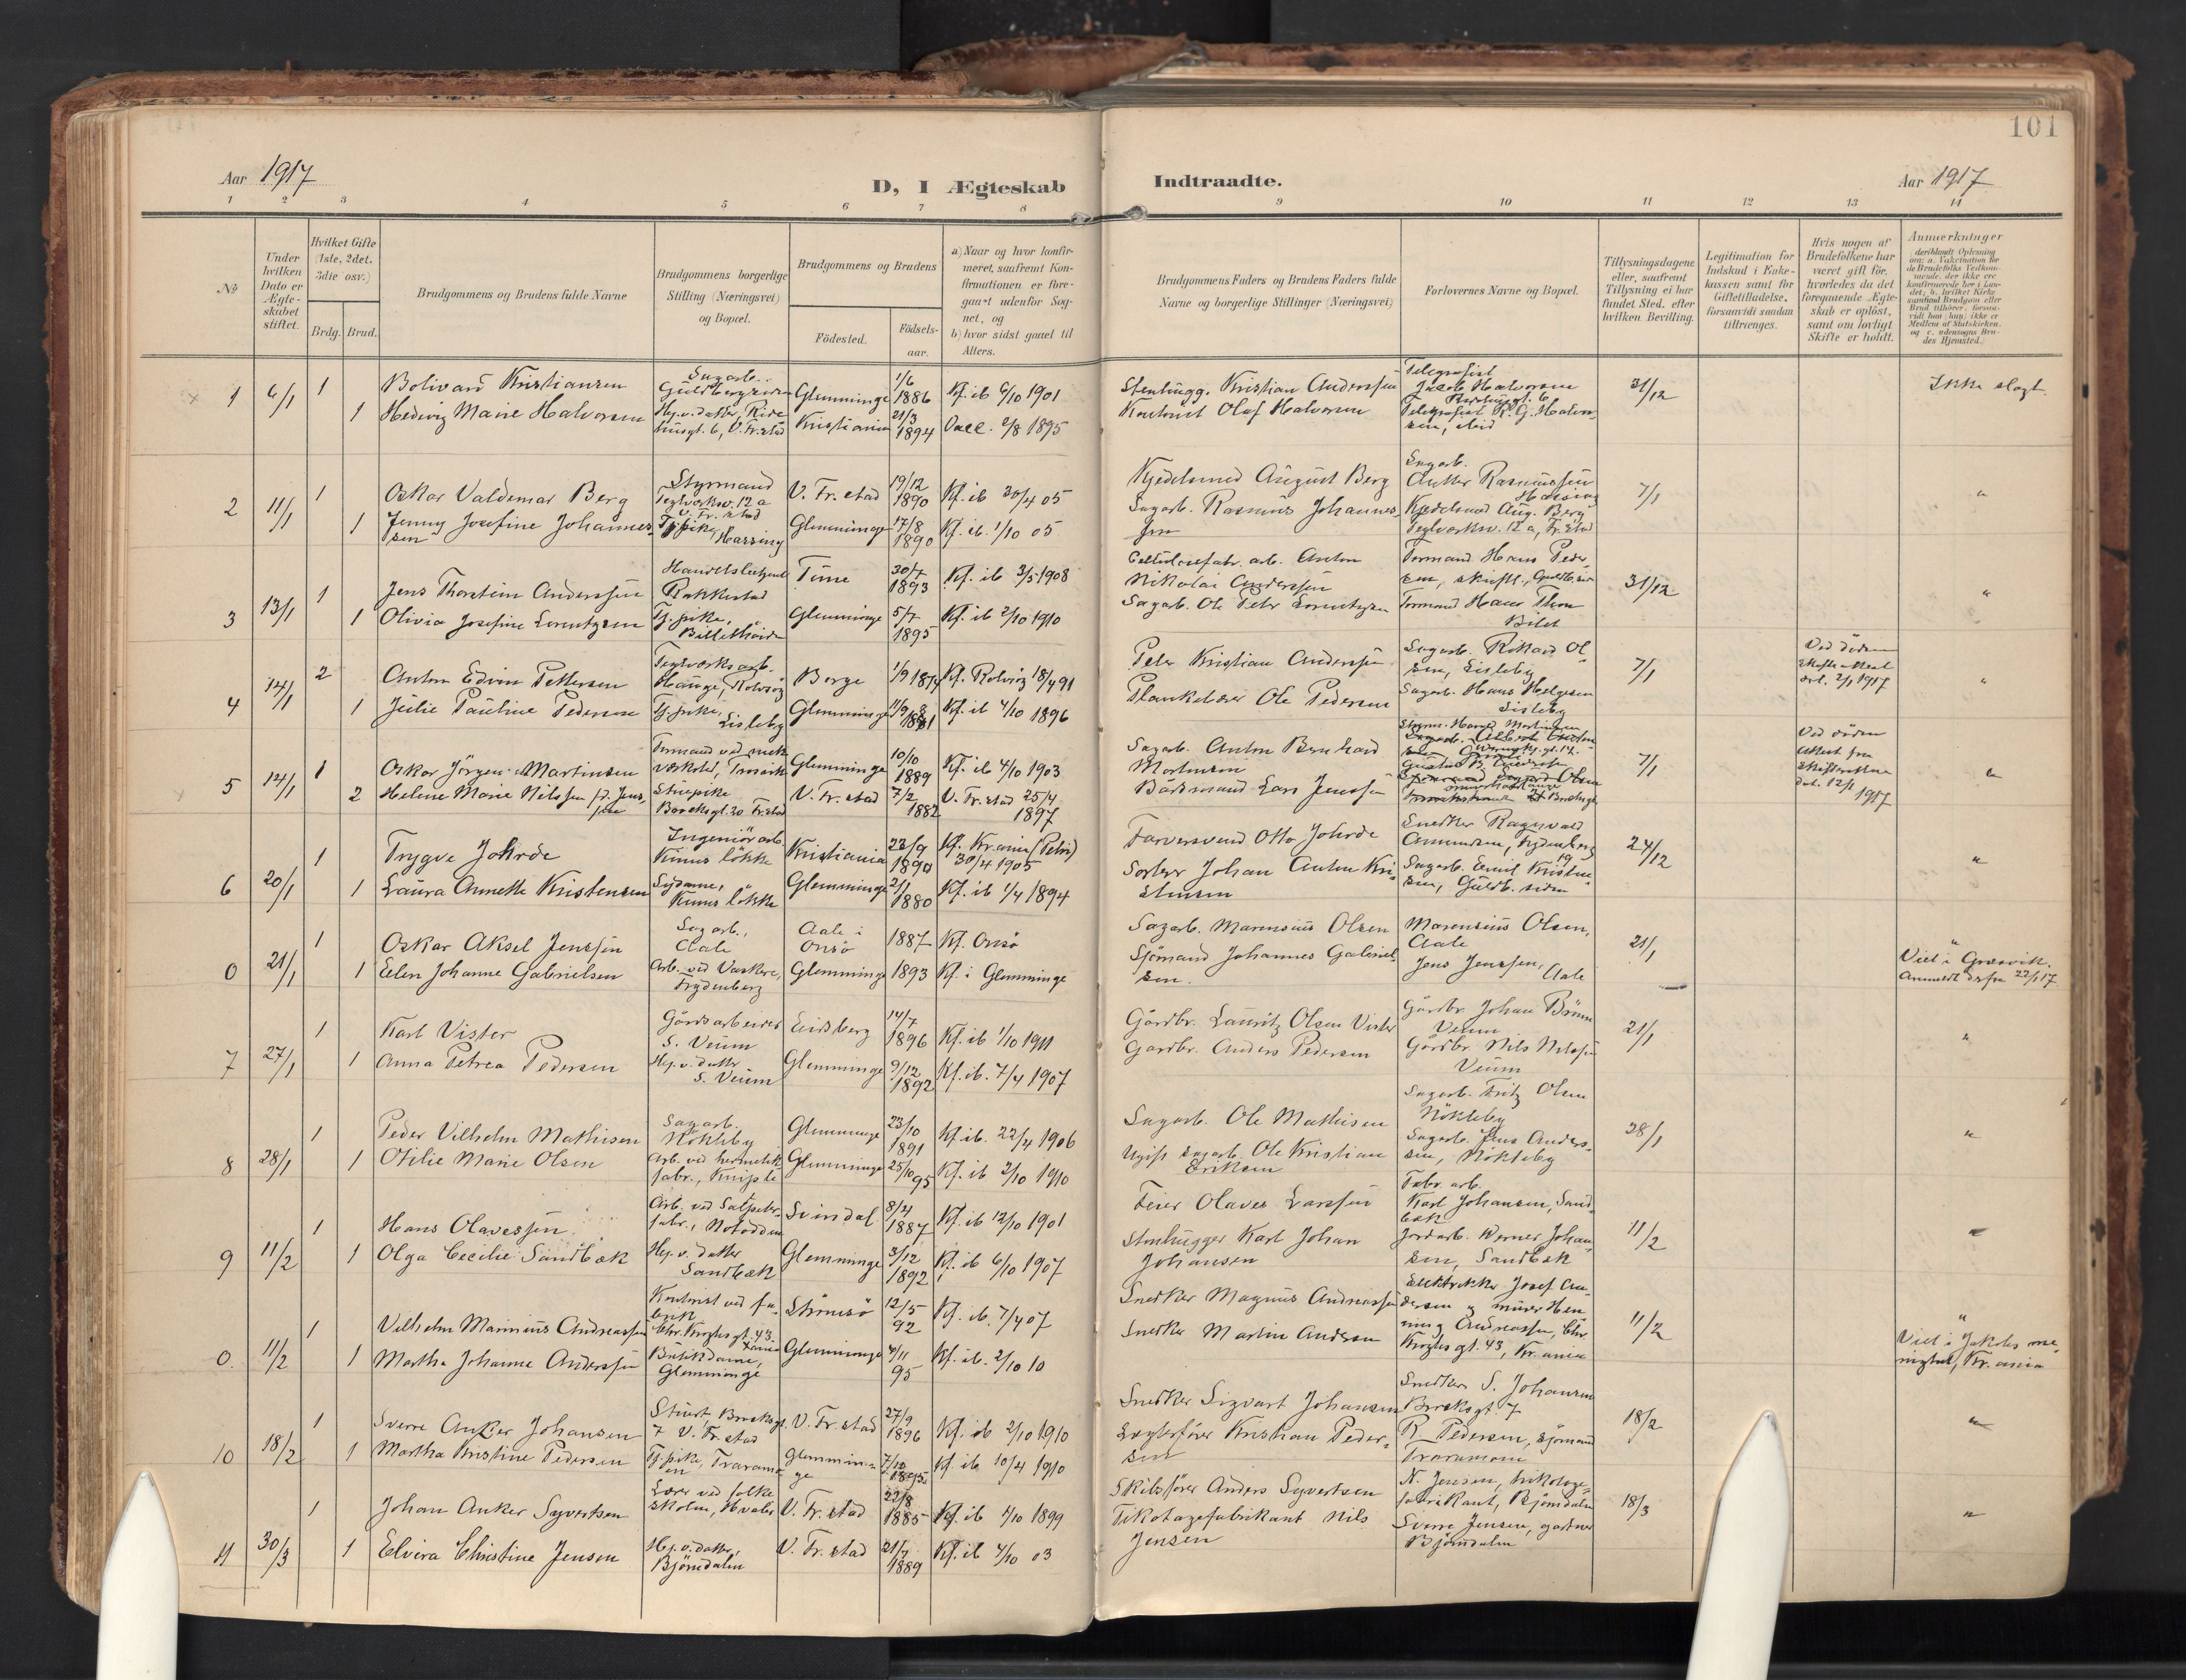 101
Aar 1917
D, I Ægteskab
Indtraadte.
Aar 1917
1 2 3 4 5 6 7 8 9 10 11 12 13 14
No
Under hvilken Dato er Ægteskabet stiftet.
Hvilket Gifte (1ste, 2det, 3die osv.)
Brdg. Brud.
Brudgommens og Brudens fulde Navne
Brudgommens borgerlige Stilling (Næringsvei) og Bopæl.
Brudgommens og Brudens
Födested.
Födselsaar.
a) Naar og hvor konfirmeret, saafremt Konfirmationen er foregaaet udenför Sognet, og
b) hvor sidst gaaet til Alters.
Brudgommens Faders og Brudens Faders fulde Navne og borgerlige Stillinger (Næringsvei)
Forlovernes Navne og Bopæl.
Tillysningsdagene eller, saafremt Tillysning ei har fundet Sted, efter hvilken Bevilling.
Legitimation for Indskud i Enkekassen samt for Giftetilladelse, forsaavidt saadan tiltrænges.
Hvis nogen af Brudefolkene har været gift för, hvorledes da det foregaaende Ægteskab er oplöst, samt om lovligt Skifte er holdt.
Anmærkninger
1 6/1 1 Bolivard Kristiansen Sagarb. Guldbergsiden Glemminge 1/6 1886 Kf. ib 6/10 1901 Stenhugg. Kristian Anderssen Telegrafist Jacob Halvorsen 31/12 Ikke slegt
1 Hedvig Marie Halvorsen Hj.v. datter, Ridehusgt. 6, V. Fr.stad Kristiania 21/3 1894 2/8 1895 Kontorist Olaf Halvorsen
2 11/1 1 Oskar Valdemar Berg Styrmand Teglverksv. 12 a V. Fr. stad V. Fr. stad 19/12 1890 Kf. ib 30/4 05 Kjedelsmed August Berg Sagarb. Anker Rasmussen 7/1 "
1 Jenny Josefine Johannessen Tj.pike, Hassing Glemminge 17/8 1890 Kf. ib. 1/10 05 Sagarb. Rasmus Johannessen Kjedelsmed Aug. Berg Teglverksv. 12 a, Fr. stad
3 13/1 1 Jens Thorstein Anderssen Rakkestad Time 30/7 1893 Kf. ib 3/5 1908 Cellulosefabr. arb. Anton Nikolai Anderssen Formand Hans Pedersen 31/12 "
1 Olivia Josefine Lorentzen Tj.pike, Glemminge 5/7 1895 Kf. ib 2/10 1910 Sagarb. Ole Peter Lorentzen Formand Hans Thon
4 14/1 2 Anton Edvin Pettersen Teglverksarb. Hauge, Rolvsöy Borge Kf. Rolvsöy 18/4 91 Peter Kristian Anderssen Sagarb. Rikard Olsen, Lisleby 7/1 Ved döden "
1 Julie Pauline Pedersen Tj.pike, Lisleby Glemminge Kf. ib 4/10 1896 Plankebærer Ole Pedersen Sagarb. Hans Helgesen Lisleby
5 14/1 1 Oskar Jörgen Martinsen Formand ved mek. verksted, Trosvik Glemminge 10/10 1889 Kf. ib 4/10 1903 Sagarb. Anton Bernhard Martinsen 7/1 Ved döden attest fra skifteretten dat. 12/1 1917 "
2 Helene Marie Nilssen f. Jenssen V. Fr. stad 7/2 1882 V. Fr. stad 25/4 1897 Baadsmand Lars Jenssen
6 20/1 1 Trygve Johrde Ingeniörarb. Kristiania 1890 Kf. Kr.ania (Petri) 30/4 1905 Farversvend Otto Johrde Snedker Ragnvald 24/12 "
1 Laura Annette Kristensen Sydame, Glemminge 2/1 1880 Kf. ib 1/4 1894 Sorterer Johan Anton Kristensen Sagarb. Emil Kristensen, Guldb. siden
0 21/1 1 Oskar Aksel Jenssen Sagarb., Aale Aale i Onsö 1887 Kf. Onsö Sagarb. Marensius Olsen Marensius Olsen, Aale 21/1 "
1 Elen Johanne Gabrielsen Arb. ved Vaskeri, Frydenberg Glemminge 1893 Kf. i Glemminge Sjömand Johannes Gabrielsen. Jens Jenssen, Aale Viet i Græsvik. Anmeldt derfra 22/1 17
7 27/1 1 Karl Vister Gårdsarbeider S. Veum Eidsberg 14/7 1896 Kf. ib 1/10 1911 Gårdbr. Lauritz Olsen Vister Gårdbr Johan Brönn Veum 21/1 "
1 Anna Petrea Pedersen Hj.v. datter S. Veum Glemminge 9/12 1892 Kf. ib. 7/4 1907 Gardbr. Anders Pedersen Gårdbr. Nils Nilssen Veum
8 28/1 1 Peder Vilhelm Mathisen Sagarb. Nökleby Glemminge 23/10 1891 Kf. ib. 22/4 1906 Sagarb. Ole Mathisen Sagarb. Fritz Olsen Nökleby 28/1 "
1 Otilie Marie Olsen Arb. ved hermetikfabr., Glemminge 25/10 95 Kf. ib 2/10 1910 Ugift sagarb. Ole Kristian Eriksen Sagarb. Jens Anderssen, Nökleby
9 11/2 1 Hans Olavessen Arb. ved Salpeterfabr., Notodden Svindal 8/4 1887 Kf. ib 12/10 1901 Feier Olaves Larssen Fabr. arb. Karl Johansen, Sandbæk 11/2 "
1 Olga Cecilie Sandbæk Hj. v. datter Sandbæk Glemminge 3/12 1892 Kf. ib 6/10 1907 Stenhugger Karl Johan Johansen Jordarb. Werner Johansen, Sandbæk
0. 11/2 1 Vilhelm Marinius Andreassen Kontorist ved fabrik Chr. Kroghs gt. 43. Kr.ania Strömsö 12/5 92 Kf. ib. 7/4 07 Snedker Magnus Andreassen Elektriker Josef Andersen og murer Henning Andreassen, Chr. Kroghs gt. 43, Kr. ania 11/2 "
1 Martha Johanne Anderssen Butikdame, Glemminge Glemminge 4/11 95 Kf. ib. 2/10 10 Snedker Martin Andersen Viet i Jakobs menighet, Kr. ania
10 18/2 1 Sverre Anker Johansen Stuert, Brocksgt. 7 V. Fr. stad V. Fr. stad 27/9 1896 Kf. ib 2/10 1910 Snedker Sigvart Johansen Snedker S. Johansen Brocksgt. 7 18/2 "
1 Martha Kristine Pedersen Tj.pike, Traramoen Glemminge 7/10 1895 Kf. ib 10/4 1910 Kristian Pedersen R. Pedersen, sjömand Traramoen
11 30/3 1 Johan Anker Syvertsen Lærer ved folkeskolen, Hvaler V. Fr. stad 22/8 1885 Kf. ib 1/10 1899 Skibsförer Anders Syvertsen N. Jensen, trikotagefabrikant, Björndalen 18/3 "
1 Elvira Christine Jensen Hj.v. datter, Björndalen V. Fr. stad 21/7 1889 Kf. ib 4/10 03 Tikotagefabrikant Nils Jensen Sverre Jensen, gartner Björndalen